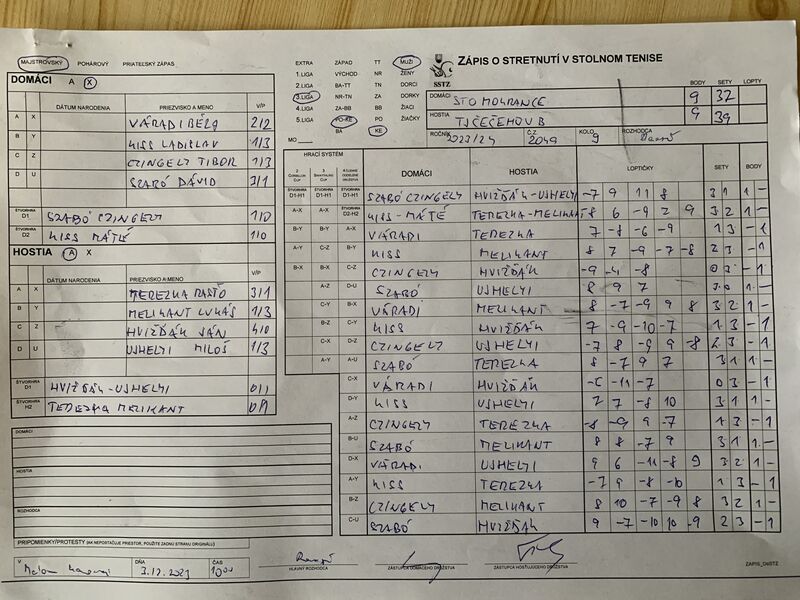 MAJSTROVSKÝ POHÁROVÝ PRIATEĽSKÝ ZÁPAS
DOMÁCI A X
DÁTUM NARODENIA PRIEZVISKO A MENO V/P
A X VÁRADI BÉLA 2/2
B Y KISS LADISLAV 1/3
C Z CZINGELY TIBOR 1/3
D U SZABÓ DÁVID 3/1
ŠTVORHRA D1 SZABÓ CZINGELY 1/0
ŠTVORHRA D2 KISS MÁTÉ 1/0
HOSTIA A X
DÁTUM NARODENIA PRIEZVISKO A MENO V/P
A X TEREZKA RASŤO 3/1
B Y MELIKANT LUKÁŠ 1/3
C Z HVIŽĎÁK JÁN 4/0
D U UJHELYI MILOŠ 1/3
ŠTVORHRA D1 HVIŽĎÁK-UJHELYI 0/1
ŠTVORHRA H2 TEREZKA MELIKANT 0/1
DOMÁCI
HOSTIA
ROZHODCA
PRIPOMIENKY/PROTESTY (AK NEPOSTAČUJE PRIESTOR, POUŽITE ZADNÚ STRANU ORIGINÁLU)
V DŇA 3.12.2023 ČAS 10:00
EXTRA ZÁPAD TT MUŽI
1.LIGA VÝCHOD NR ŽENY
2.LIGA BA-TT TN DORCI
3.LIGA NR-TN ZA DORKY
4.LIGA ZA-BB BB ŽIACI
5.LIGA PO-KE PO ŽIAČKY
MO BA KE
SSTZ
ZÁPIS O STRETNUTÍ V STOLNOM TENISE
BODY SETY LOPTY
DOMÁCI STO MOKRANCE 9 32
HOSTIA TJ ČEČEHOV B 9 39
ROČNÍK 2023/24 Č.Z. 2049 KOLO 9 ROZHODCA
HRACÍ SYSTÉM DOMÁCI HOSTIA LOPTIČKY SETY BODY
ŠTVORHRA D1-H1 ŠTVORHRA D1-H1 ŠTVORHRA D1-H1 SZABÓ CZINGELY HVIŽĎÁK-UJHELYI -7 9 11 8 3 1 1 -
A-X A-X ŠTVORHRA D2-H2 KISS-MÁTÉ TEREZKA-MELIKANT 8 6 -9 2 9 3 2 1 -
B-Y B-Y A-X VÁRADI TEREZKA 7 -8 -6 -9 1 3 - 1
A-Y C-Z B-Y KISS MELIKANT 8 7 -9 -7 -8 2 3 - 1
B-X B-X C-Z CZINGELY HVIŽĎÁK -9 -4 -8 0 3 - 1
A-Z D-U SZABÓ UJHELYI 8 9 7 3 0 1 -
C-Y B-X VÁRADI MELIKANT 8 -7 -9 9 8 3 2 1 -
B-Z C-Y KISS HVIŽĎÁK 7 -9 -10 -7 1 3 - 1
C-X D-Z CZINGELY UJHELYI -7 8 -9 9 -8 2 3 - 1
A-Y A-U SZABÓ TEREZKA 8 -7 9 7 3 1 1 -
C-X VÁRADI HVIŽĎÁK -6 -11 -7 0 3 - 1
D-Y KISS UJHELYI 7 7 -8 10 3 1 1 -
A-Z CZINGELY TEREZKA -8 -9 9 -7 1 3 - 1
B-U SZABÓ MELIKANT 8 8 -7 9 3 1 1 -
D-X VÁRADI UJHELYI 9 6 -11 -8 9 3 2 1 -
A-Y KISS TEREZKA -7 9 -8 -10 1 3 - 1
B-Z CZINGELY MELIKANT 8 10 -7 -9 8 3 2 1 -
C-U SZABÓ HVIŽĎÁK 9 -7 -10 10 -9 2 3 - 1
HLAVNÝ ROZHODCA ZÁSTUPCA DOMÁCEHO DRUŽSTVA ZÁSTUPCA HOSŤUJÚCEHO DRUŽSTVA
ZAPIS_OsSTZ